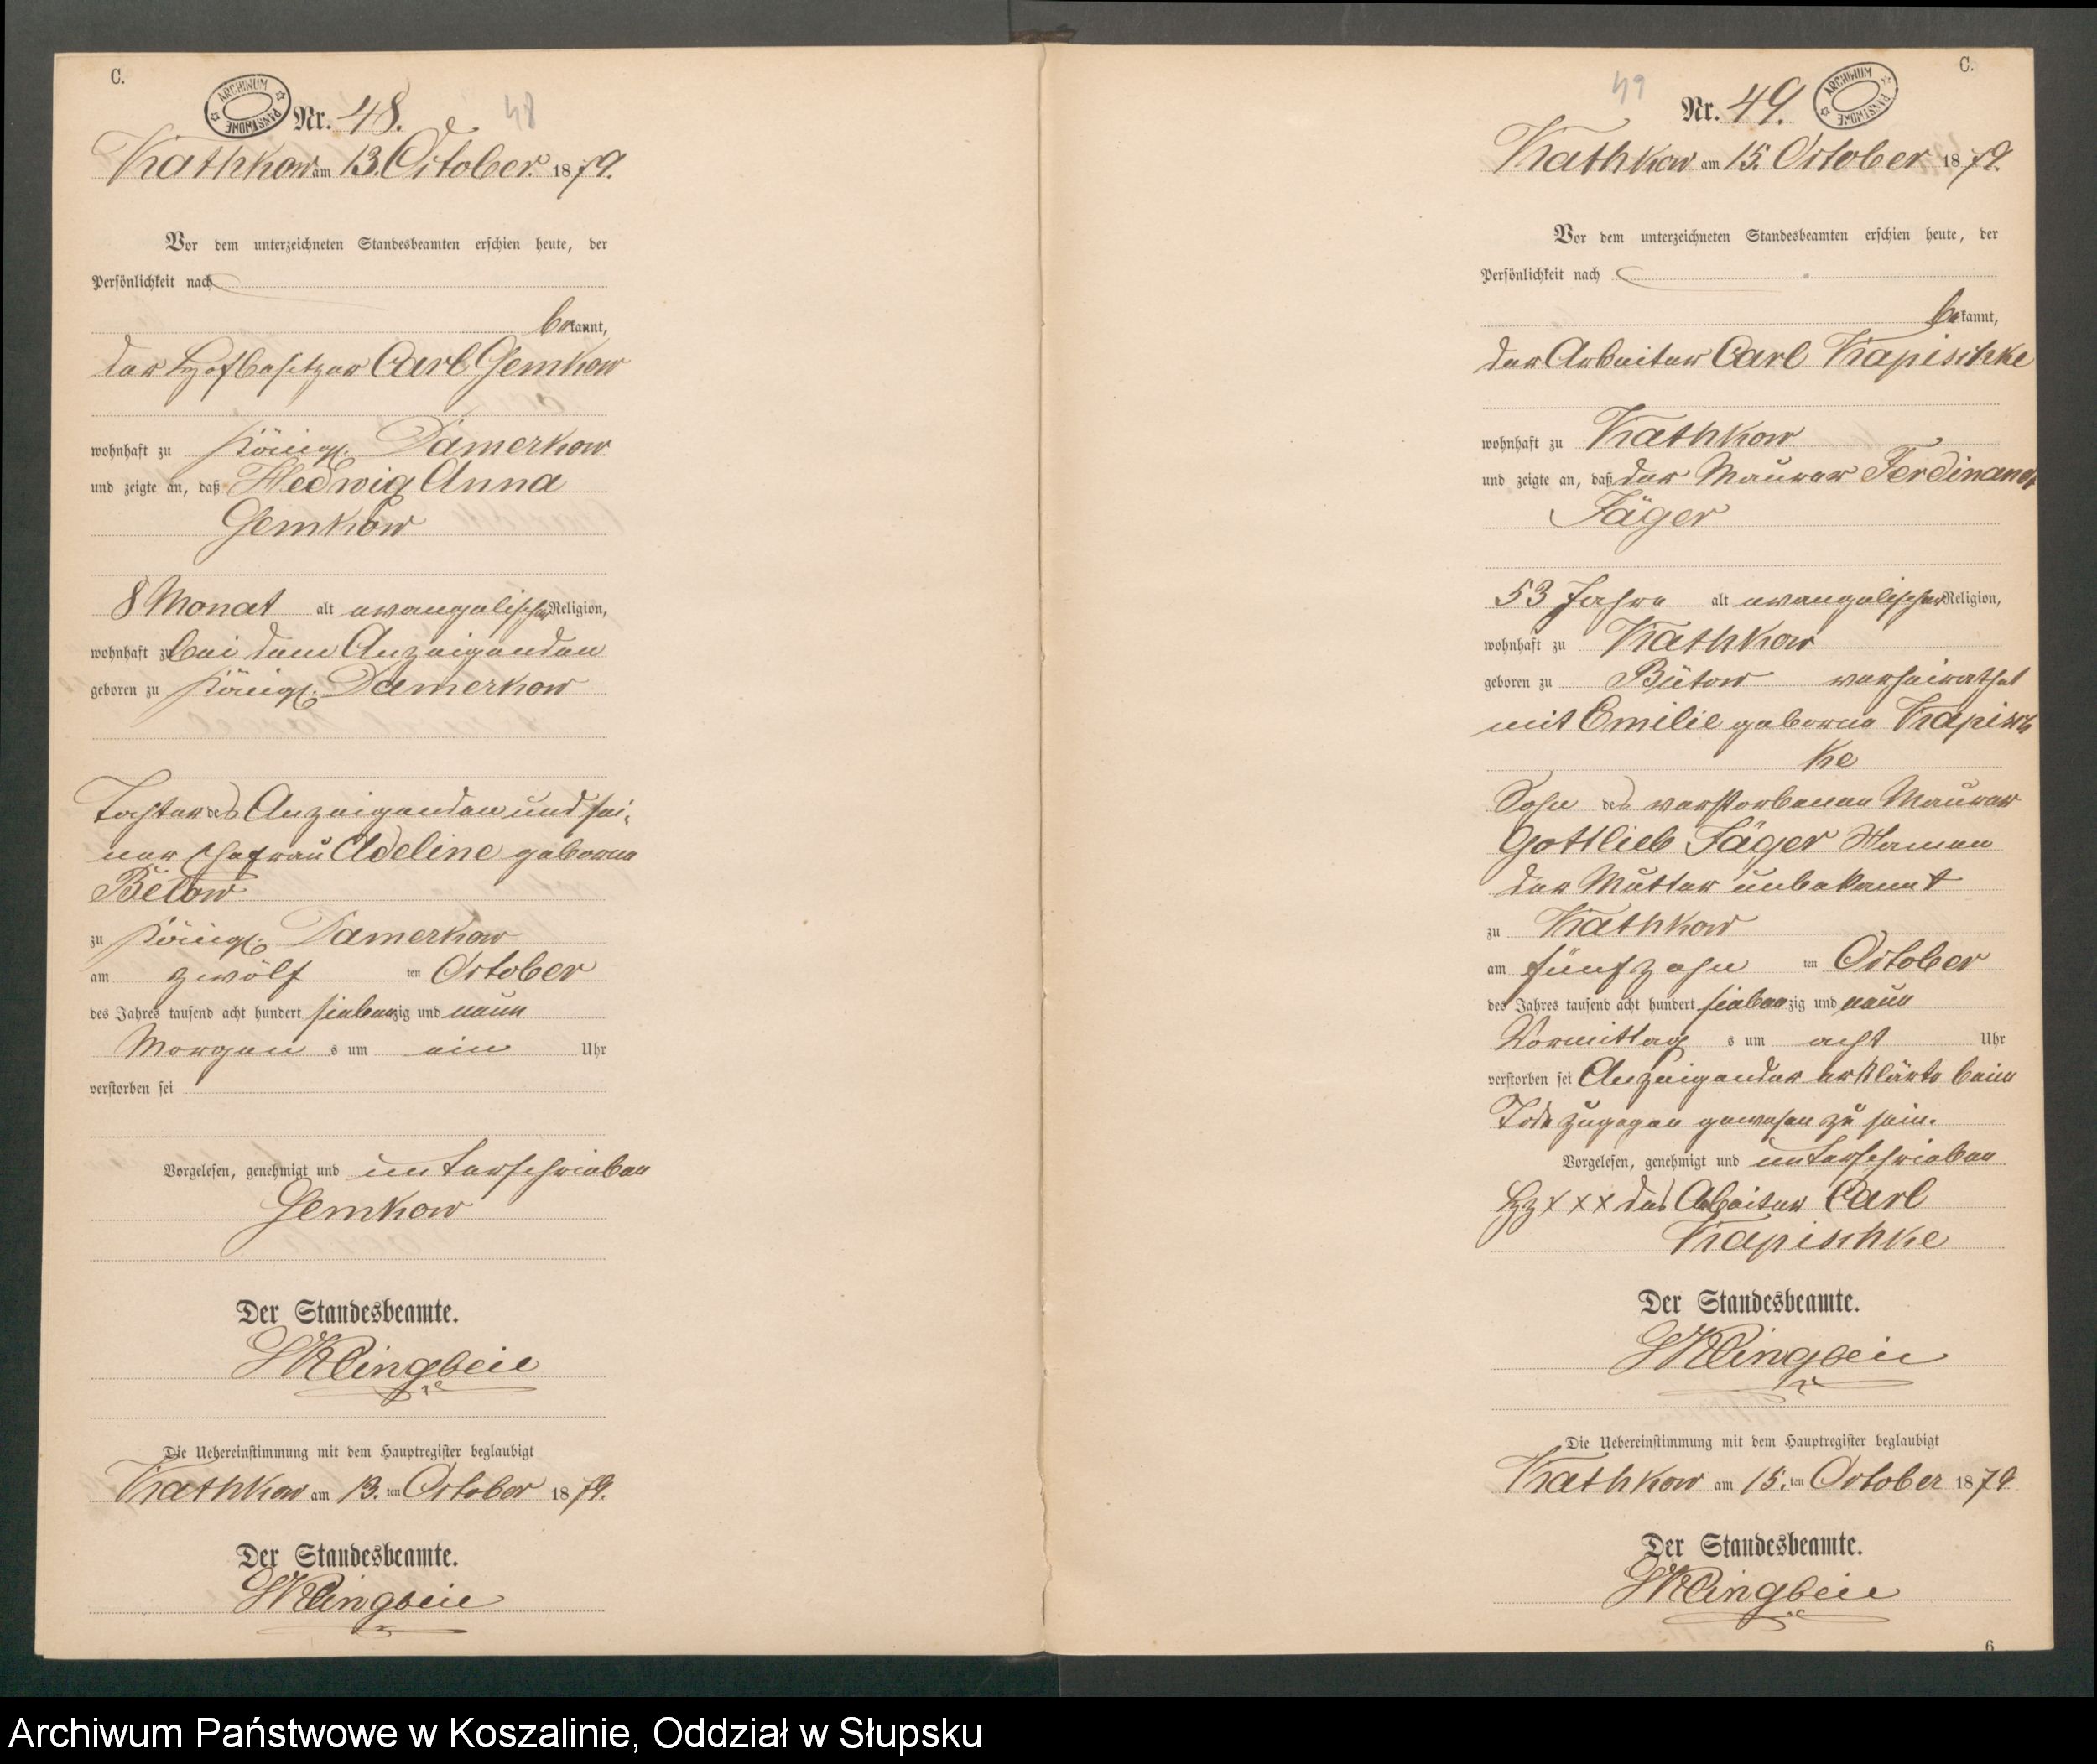 C.
ARCHIWUM PAŃSTWOWE
Nr. 48.
48
Kathkow am 13. October 1879.
Vor dem unterzeichneten Standesbeamten erschien heute, der
Persönlichkeit nach
bekannt,
der Hofbesitzer Carl Gemkow
wohnhaft zu Königl. Damerkow
und zeigte an, daß Hedwig Anna
Gemkow
8 Monat alt evangelischer Religion,
wohnhaft zu bei dem Anzeigenden
geboren zu Königl. Damerkow
Tochter des Anzeigenden und sei-
ner Ehefrau Adeline geborne
Below
zu Königl. Damerkow
am zwölf ten October
des Jahres tausend acht hundert siebenzig und neun
Morgen s um ein Uhr
verstorben sei
Vorgelesen, genehmigt und unterschrieben
Gemkow
Der Standesbeamte.
Klingbeil
Die Uebereinstimmung mit dem Hauptregister beglaubigt
Kathkow am 13. ten October 1879.
Der Standesbeamte.
Klingbeil
C.
49
Nr. 49.
ARCHIWUM PAŃSTWOWE
Kathkow am 15. October 1879.
Vor dem unterzeichneten Standesbeamten erschien heute, der
Persönlichkeit nach
bekannt,
der Arbeiter Carl Kapischke
wohnhaft zu Kathkow
und zeigte an, daß der Maurer Ferdinand
Jäger
53 Jahre alt evangelischer Religion,
wohnhaft zu Kathkow
geboren zu Bütow verheirathet
mit Emilie geborne Kapisch
ke
Sohn des verstorbenen Maurer
Gottlieb Jäger Namen
der Mutter unbekannt
zu Kathkow
am fünfzehn ten October
des Jahres tausend acht hundert siebenzig und neun
Vormittag s um acht Uhr
verstorben sei Anzeigender erklärte beim
Tode zugegen gewesen zu sein.
Vorgelesen, genehmigt und unterschrieben
Hz x x x des Arbeiter Carl
Kapischke
Der Standesbeamte.
Klingbeil
Die Uebereinstimmung mit dem Hauptregister beglaubigt
Kathkow am 15. ten October 1879
Der Standesbeamte.
Klingbeil
6
Archiwum Państwowe w Koszalinie, Oddział w Słupsku